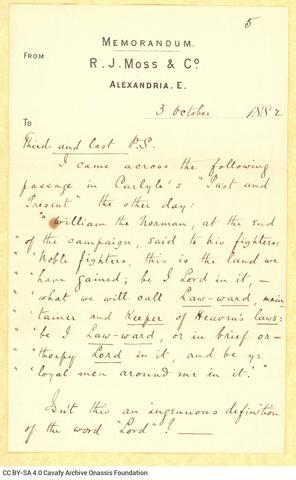 5
MEMORANDUM.
FROM
R. J. MOSS & Co.
ALEXANDRIA, E.
3 October 1882
TO
Third and last P.S.
I came across the following
passage in Carlyle's "Past and
Present" the other day:
" "William the Norman, at the end
" of the campaign, said to his fighters:
" 'Noble fighters, this is the land we
" 'have gained; be I Lord in it, —
" 'what we will call Law-ward, main
" 'tainer and Keeper of Heaven's laws:
" 'be I Law-ward, or in brief or-
" 'thoepy Lord in it, and be ye
" 'loyal men around me in it.'"
Isn't this an ingenuous definition
of the word "Lord"? —
CC BY-SA 4.0 Cavafy Archive Onassis Foundation